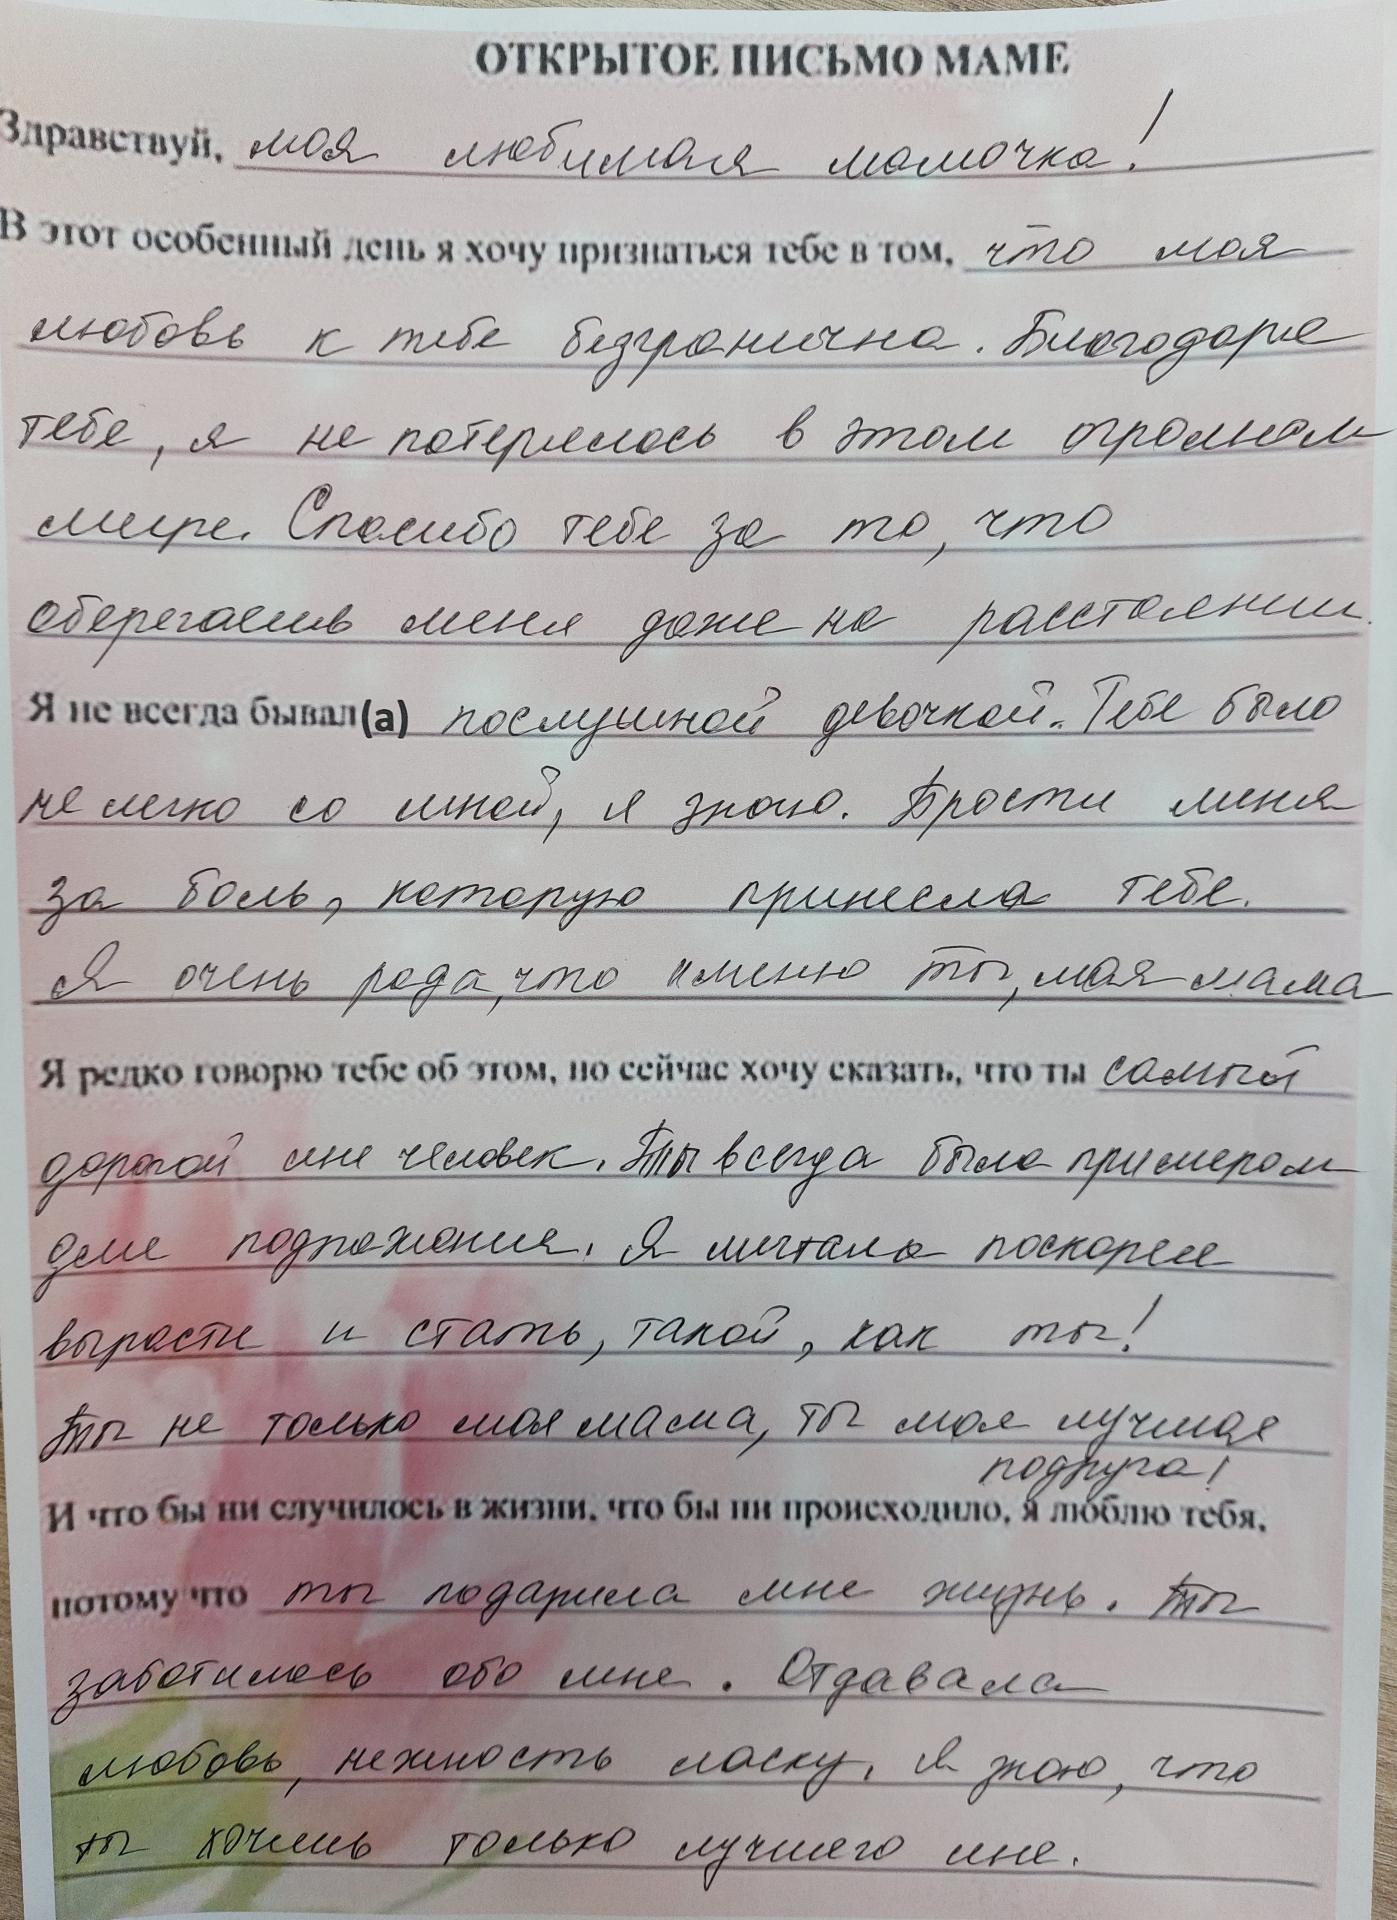 ОТКРЫТОЕ ПИСЬМО МАМЕ
Здравствуй, моя любимая мамочка!
В этот особенный день я хочу признаться тебе в том, что моя
любовь к тебе безгранична. Благодаря
тебе, я не потерялась в этом огромном
мире. Спасибо тебе за то, что
оберегаешь меня даже на расстоянии.
Я не всегда бывал(а) послушной девочкой. Тебе было
не легко со мной, я знаю. Прости меня
за боль, которую принесла тебе.
Я очень рада, что именно ты, моя мама
Я редко говорю тебе об этом, но сейчас хочу сказать, что ты самый
дорогой мне человек. Ты всегда была примером
для подражания. Я мечтала поскорее
вырасти и стать, такой, как ты!
Ты не только моя мама, ты моя лучшая
подруга!
И что бы ни случилось в жизни, что бы ни происходило, я люблю тебя,
потому что ты подарила мне жизнь. Ты
заботилась обо мне. Отдавала
любовь, нежность ласку. Я знаю, что
ты хочешь только лучшего мне.